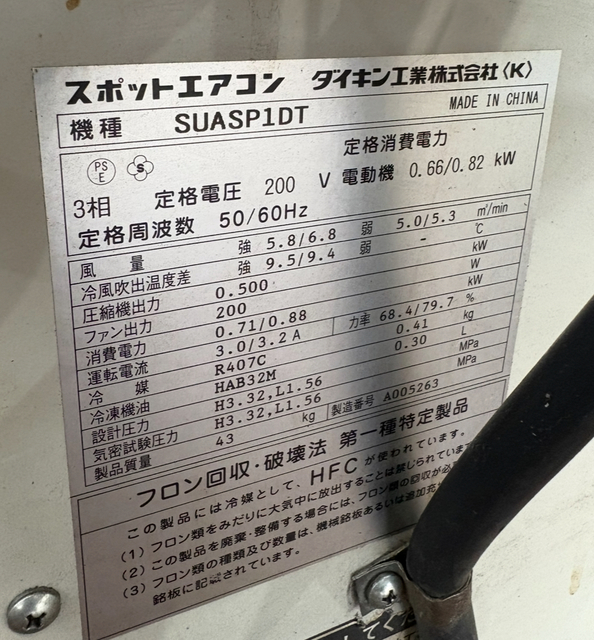 スポットエアコン ダイキン工業株式会社〈K〉
機種 SUASP1DT MADE IN CHINA
PS E S 定格消費電力
3相 定格電圧 200 V 電動機 0.66/0.82 kW
定格周波数 50/60Hz
風量 強 5.8/6.8 弱 5.0/5.3 m³/min
冷風吹出温度差 強 9.5/9.4 弱 - ℃
圧縮機出力 0.500 kW
ファン出力 200 W
消費電力 0.71/0.88 kW
運転電流 3.0/3.2 A 力率 68.4/79.7 %
冷媒 R407C 0.41 kg
冷凍機油 HAB32M 0.30 L
設計圧力 H3.32,L1.56 MPa
気密試験圧力 H3.32,L1.56 MPa
製品質量 43 kg 製造番号 A005263
フロン回収・破壊法 第一種特定製品
この製品には冷媒として、HFCが使われています。
(1) フロン類をみだりに大気中に放出することは禁じられています
(2) この製品を廃棄・整備する場合には、フロン類の回収が必
(3) フロン類の種類及び数量は、機械銘板あるいは追加充
銘板に記載されています。